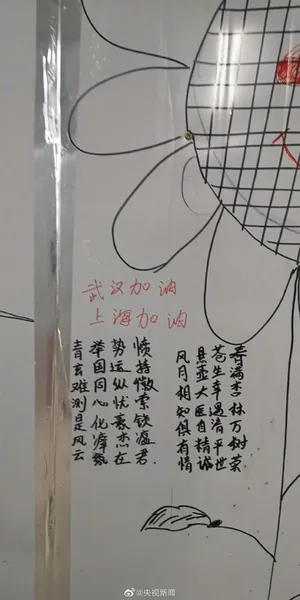 武汉加油
上海加油
春满杏林万树荣
苍生幸遇清平世
悬壶大医自精诚
风月相知俱有情
愤持檄索铁瘟君
势运纵忧豪杰在
举国同心化瘴氛
青玄难测是风云
@央视新闻